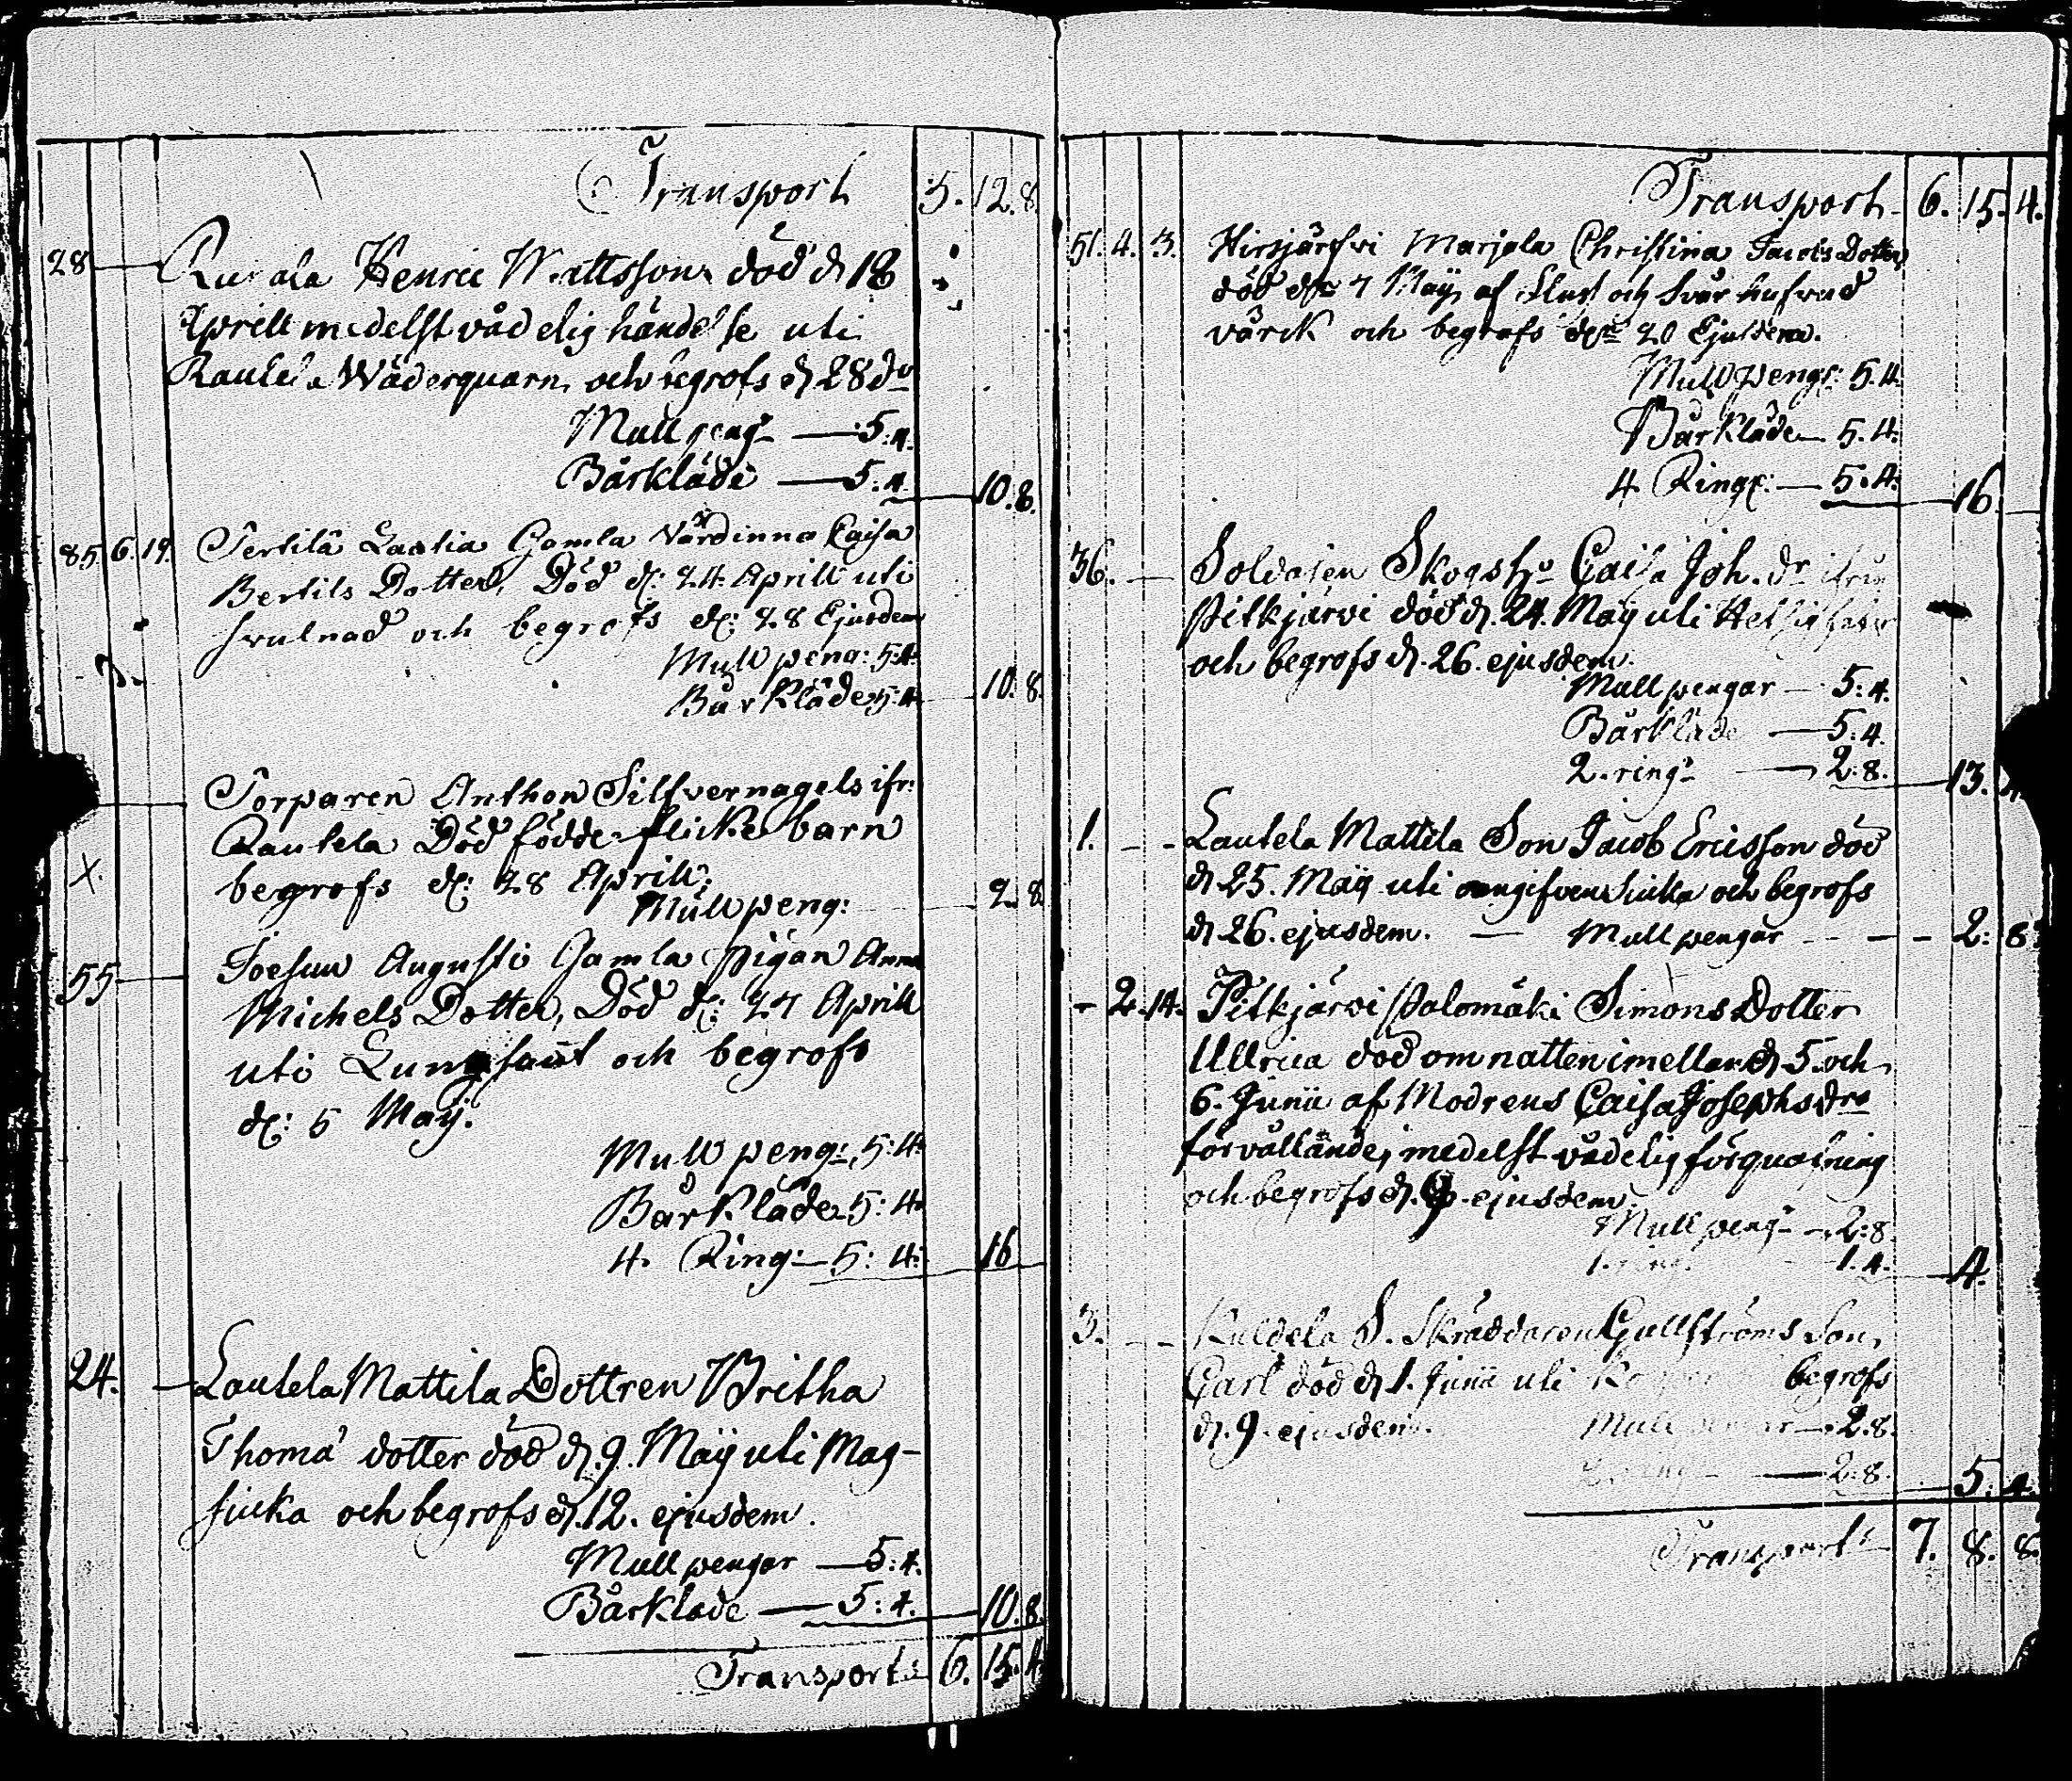 Transport 5. 12. 8.
28 — Henric Mattsson död d. 18
Aprill medelst våd elig händelse uti
Rautela Wäderquarn och begrofs d. 28 do
Mull peng — 5: 4.
Bårkläde — 5. 4. 10. 8.
85. 6. 19. Tertilä Lastia Gamla Värdinna Caisa
Bertils Dotter, Död d: 24 Aprill uti
svulnad och begrofs d: 28 Ejusdem
Mull peng: 5:4.
Bår Kläde 5:4 10. 8.
Torparen Anthon Silfvernagels ifr:
Rautela Död födde flicke barn
X. begrofs d: 28 Aprill;
Mull peng: 2. 8
55 — Joesuu Augusti Gamla Pigan Anna
Michels Dotter, Död d: 27 Aprill
uti Lungsout och begrofs
d: 5 Maij.
Mull peng: 5:4.
Bår Kläde 5:4.
4. Ring: — 5: 4: 16
24. — Lautela Mattila Dottren Britha
Thoma dotter död d. 9. Maij uti Mag-
siuka och begrofs d. 12. ejusdem.
Mull pengar — 5: 4.
Bårkläde — 5: 4. 10. 8.
Transport 6. 15. 4
Transport 6. 15. 4.
51. 4. 3. Hirsjärfvi Marjala Christina Jacobs Dotter
död d. 7 Maij af och svår hufvud
värck och begrofs den 20 Ejusdem.
Mull peng: 5. 4.
Bår Kläde 5. 4.
4 Ring: — 5. 4. 16
36. — Soldaten Skogs Hu Caisa Joh. dr ifrån
Pitkjärvi död d. 24. Maij uti
och begrofs d. 26. ejusdem.
Mull pengar — 5: 4.
Bårkläde — 5. 4.
2. ring — 2. 8. 13.
1. - - Lautela Mattila Son Jacob Ericsson död
d 25. Maij uti oangifven siuka och begrofs
d 26. ejusdem. — Mull pengar - - - 2: 8.
- 2. 14. Pitkjärvi Palomäki Simons Dotter
Ullrica död om natten imellan d. 5. och
6. Junii af Modrens Caisa Josephs drs
förvållande, medelst vådelig förquafning
och begrofs d. 9. ejusdem.
Mull peng — 2: 8.
1. ring. 1. 4. 4.
3. - - Kuldela S. Skräddaren Gullströms Son,
Carl död d. 1. Junii uti begrofs
d. 9. ejusdem. Mull pengar — 2. 8.
ring — 2: 8. 5. 4.
Transport 7. 8. 8.